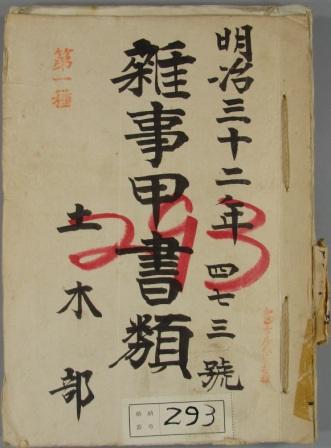 明治三十二年 四七三號
雜事甲書類
土木部
第一種
293
293